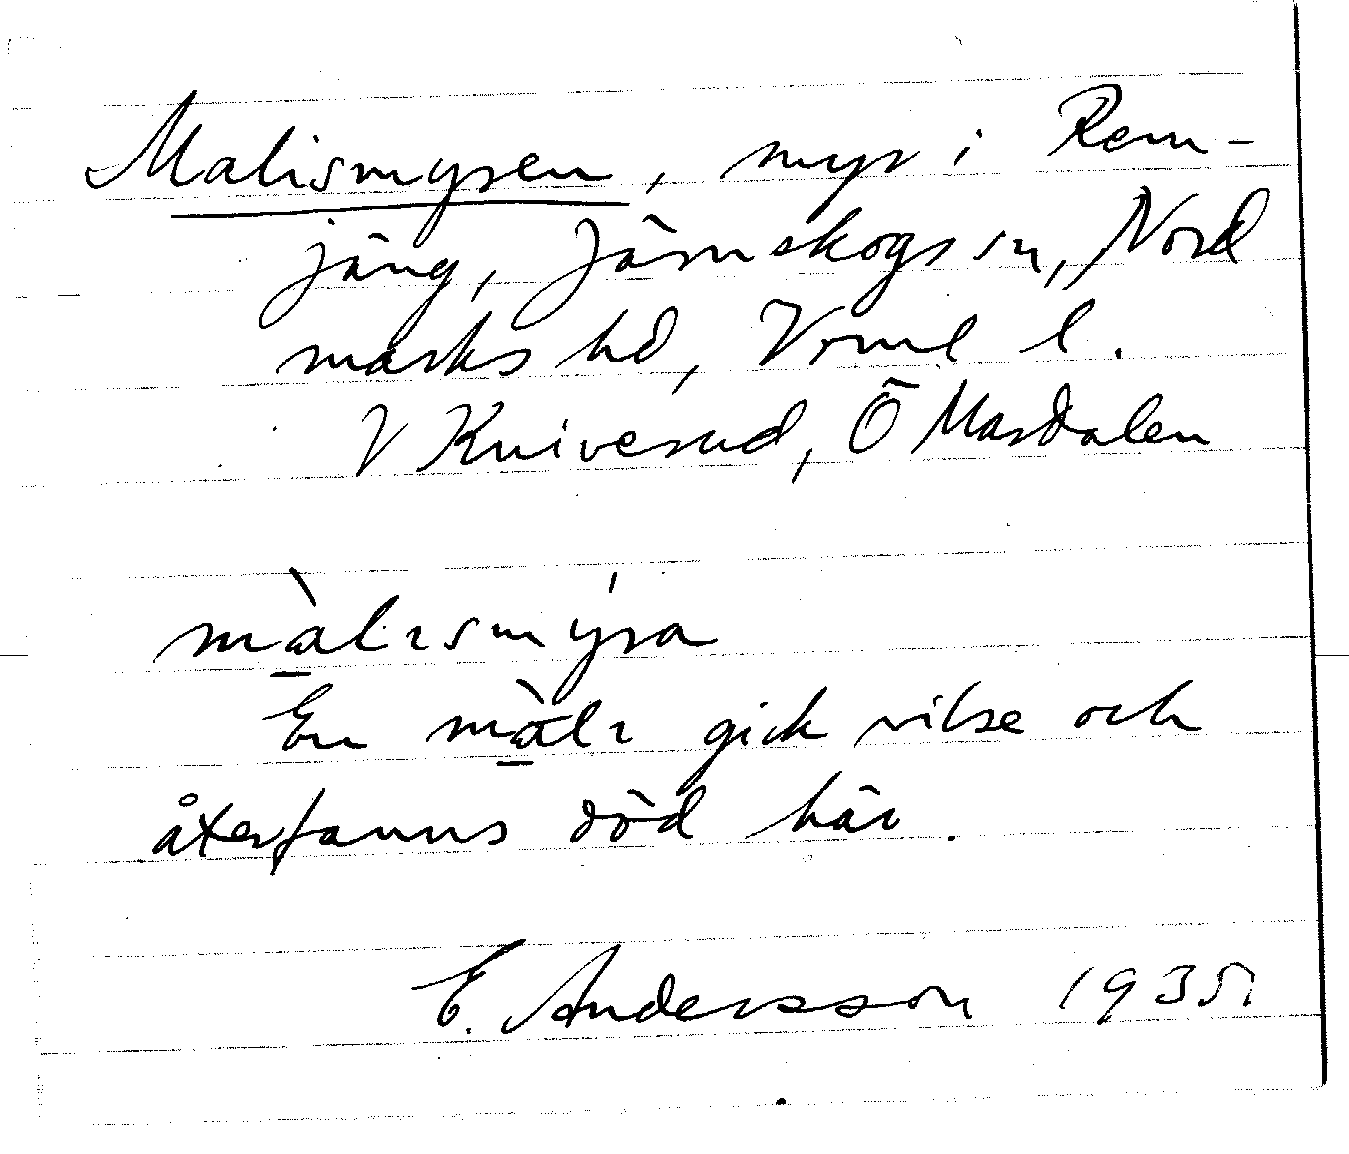 Malismyren, myr i Rem-
jäng, Järnskogs sn, Nord
marks hd, Vrml l.
V Kniverud, Ö Mardalen
màlismýra
En màli gick vilse och
återfanns död här.
E. Andersson 1935